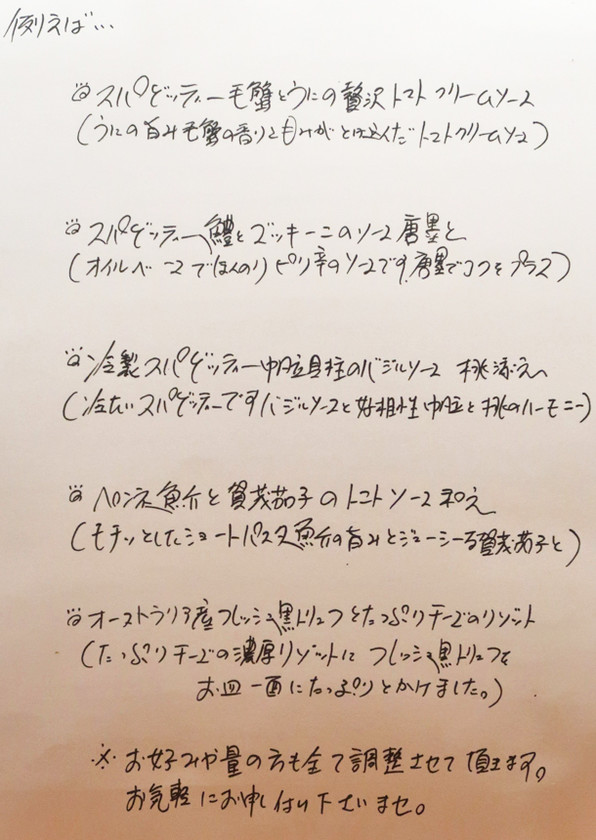 例えば…
スパゲッティー毛蟹とうにの贅沢トマトクリームソース
(うにの旨み毛蟹の香りと
とけ込んだトマトクリームソース)
スパゲッティー鱧とズッキーニのソース唐墨と
(オイルベースでほんのりピリ辛のソースです。唐墨でコクをプラス)
冷製スパゲッティー中 貝柱のバジルソース 桃添え
(冷たいスパゲッティーですバジルソースと好相性 と桃のハーモニー)
ペンネ魚介と賀茂茄子のトマトソース和え
(モチッとしたショートパスタ魚介の旨みとジューシーな賀茂茄子と)
オーストラリア産フレッシュ黒トリュフとたっぷりチーズのリゾット
(たっぷりチーズの濃厚リゾットに フレッシュ黒トリュフを
お皿一面にたっぷりとかけました。)
※ お好みや量の方も全て調整させて頂きます。
お気軽にお申し付け下さいませ。